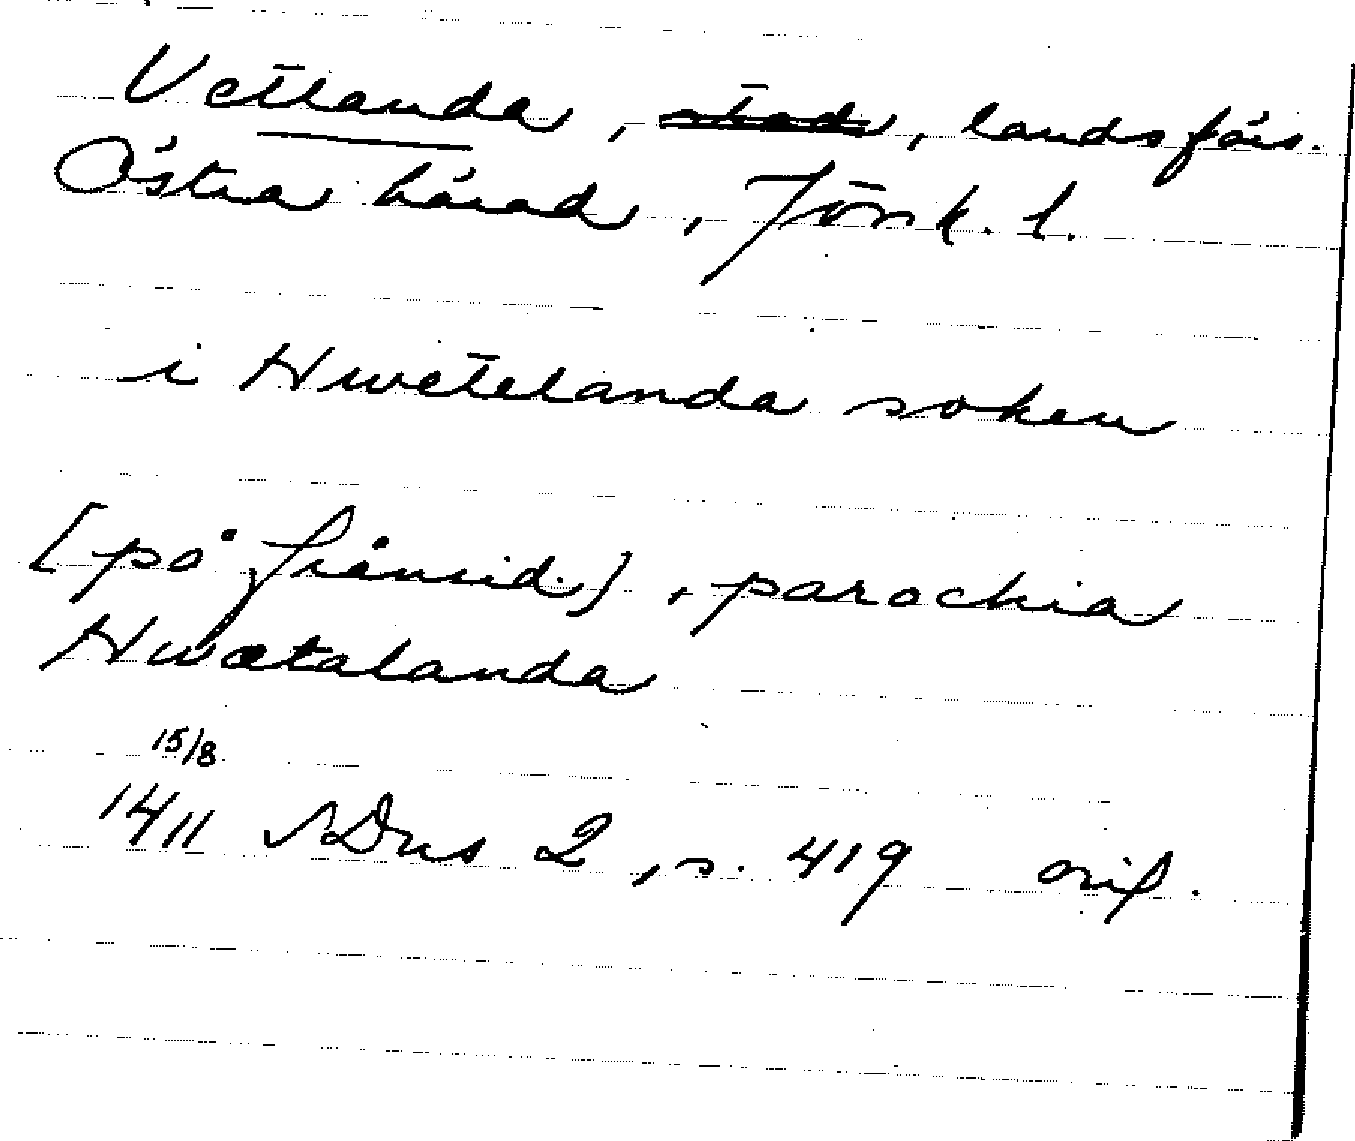 Vetlanda, stad, landsförs.
Östra härad, Jönk. l.
i Hwetelanda soken
[på frånsid.], parochia
Hwætalanda
15/8
1411 SDns 2, s. 419 orig.